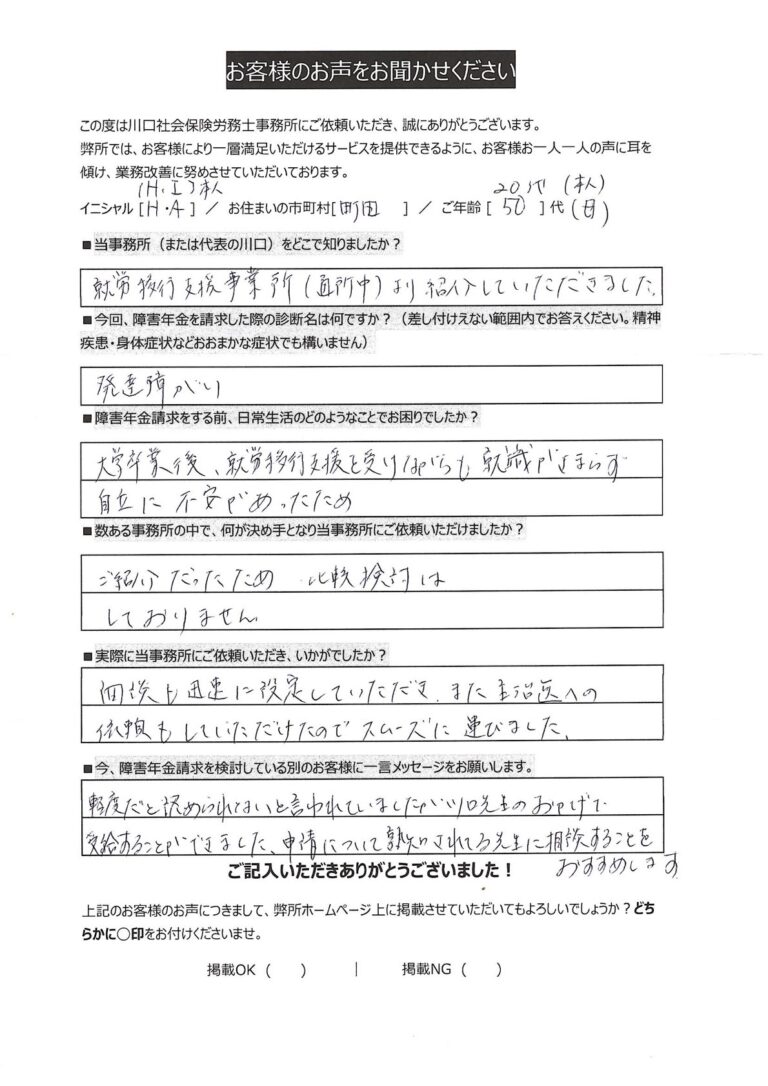 お客様のお声をお聞かせください
この度は川口社会保険労務士事務所にご依頼いただき、誠にありがとうございます。
弊所では、お客様により一層満足いただけるサービスを提供できるように、お客様お一人一人の声に耳を
傾け、業務改善に努めさせていただいております。
(H.I)本人 20代 (本人)
イニシャル [ H・A ] / お住まいの市町村[ 町田 ] / ご年齢 [ 50 ] 代 (母)
■当事務所(または代表の川口)をどこで知りましたか?
就労移行支援事業所(通所中)より紹介していただきました。
■今回、障害年金を請求した際の診断名は何ですか?(差し付けえない範囲内でお答えください。精神
疾患・身体症状などおおまかな症状でも構いません)
発達障がい
■障害年金請求をする前、日常生活のどのようなことでお困りでしたか?
大学卒業後、就労移行支援を受けながらも就職がきまらず
自立に不安があったため
■数ある事務所の中で、何が決め手となり当事務所にご依頼いただけましたか?
ご紹介だったため 比較検討は
しておりません
■実際に当事務所にご依頼いただき、いかがでしたか?
面談も迅速に設定していただき、また主治医への
依頼もしていただけたのでスムーズに運びました。
■今、障害年金請求を検討している別のお客様に一言メッセージをお願いします。
軽度だと認められないと言われていましたが川口先生のおかげで
受給することができました。申請について熟知されてる先生に相談することを
おすすめします
ご記入いただきありがとうございました!
上記のお客様のお声につきまして、弊所ホームページ上に掲載させていただいてもよろしいでしょうか?どち
らかに○印をお付けくださいませ。
掲載OK ( ) | 掲載NG ( )